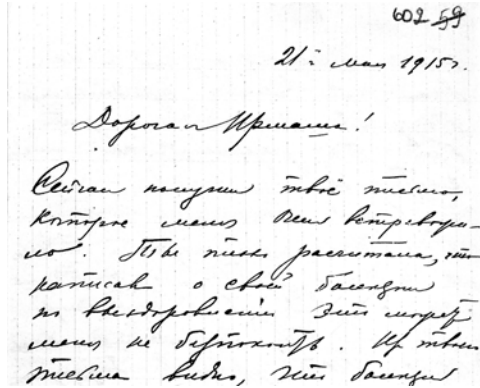 602 59
21го мая 1915 г.
Дорогая Ирмаша!
Сейчас получил твоё письмо,
которое меня очень встревожи-
ло. Ты плохо расчитала, что
написав о своей болезни
по выздоровлении это может
меня не беспокоить. Из твоего
письма видно, что болезнь